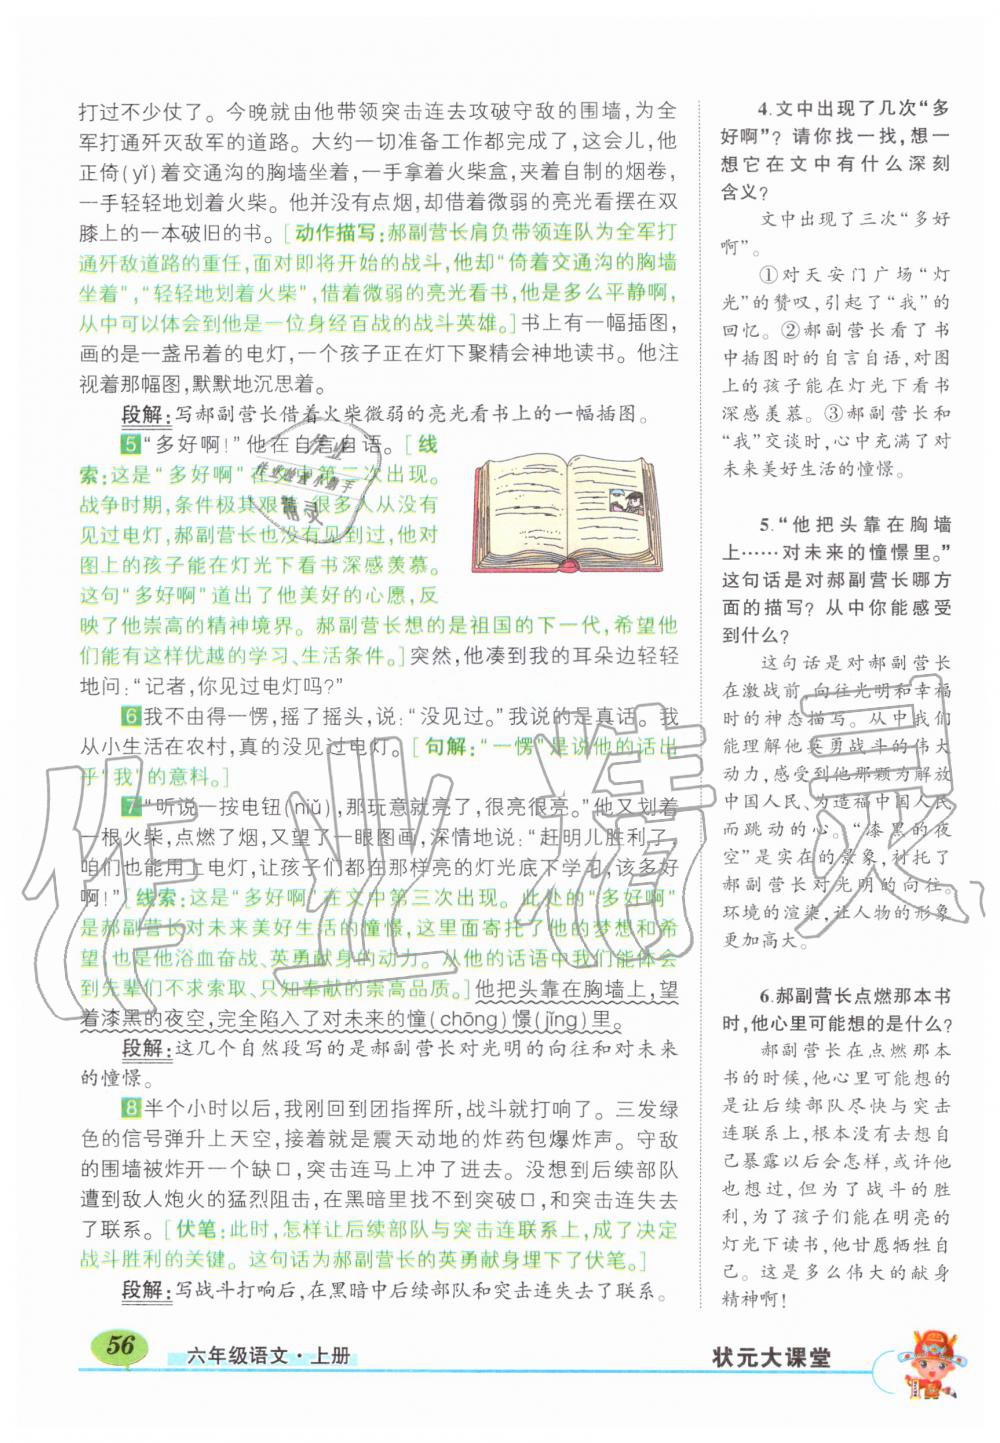 打过不少仗了。今晚就由他带领突击连去攻破守敌的围墙，为全
军打通歼灭敌军的道路。大约一切准备工作都完成了，这会儿，他
正倚(yǐ)着交通沟的胸墙坐着，一手拿着火柴盒，夹着自制的烟卷，
一手轻轻地划着火柴。他并没有点烟，却借着微弱的亮光看摆在双
膝上的一本破旧的书。[动作描写：郝副营长肩负带领连队为全军打
通歼敌道路的重任，面对即将开始的战斗，他却“倚着交通沟的胸墙
坐着”，“轻轻地划着火柴”，借着微弱的亮光看书，他是多么平静啊，
从中可以体会到他是一位身经百战的战斗英雄。]书上有一幅插图，
画的是一盏吊着的电灯，一个孩子正在灯下聚精会神地读书。他注
视着那幅图，默默地沉思着。
段解：写郝副营长借着火柴微弱的亮光看书上的一幅插图。
5 “多好啊！”他在自言自语。[线
索：这是“多好啊”在文中第二次出现。
战争时期，条件极其艰苦，很多人从没有
见过电灯，郝副营长也没见过，他对
图上的孩子能在灯光下看书深感羡慕。
这句“多好啊”道出了他美好的心愿，反
映了他崇高的精神境界。郝副营长想的是祖国的下一代，希望他
们能有这样优越的学习、生活条件。]突然，他凑到我的耳朵边轻轻
地问：“记者，你见过电灯吗？”
6 我不由得一愣，摇了摇头，说：“没见过。”我说的是真话。我
从小生活在农村，真的没见过电灯。[句解：“一愣”是说他的话出
乎“我”的意料。]
7 “听说一按电钮(niǔ)，那玩意就亮了，很亮很亮。”他又划着
一根火柴，点燃了烟，又望了一眼图画，深情地说：“赶明儿胜利了，
咱们也能用上电灯，让孩子们都在那样亮的灯光底下学习，该多好
啊！”[线索：这是“多好啊”在文中第三次出现。此处的“多好啊”
是郝副营长对未来美好生活的憧憬，这里面寄托了他的梦想和希
望，也是他浴血奋战、英勇献身的动力。从他的话语中我们能体会
到先辈们不求索取、只知奉献的崇高品质。]他把头靠在胸墙上，望
着漆黑的夜空，完全陷入了对未来的憧(chōng)憬(jǐng)里。
段解：这几个自然段写的是郝副营长对光明的向往和对未来
的憧憬。
8 半个小时以后，我刚回到团指挥所，战斗就打响了。三发绿
色的信号弹升上天空，接着就是震天动地的炸药包爆炸声。守敌
的围墙被炸开一个缺口，突击连马上冲了进去。没想到后续部队
遭到敌人炮火的猛烈阻击，在黑暗里找不到突破口，和突击连失去
了联系。[伏笔：此时，怎样让后续部队与突击连联系上，成了决定
战斗胜利的关键。这句话为郝副营长的英勇献身埋下了伏笔。]
段解：写战斗打响后，在黑暗中后续部队和突击连失去了联系。
4.文中出现了几次“多
好啊”？请你找一找，想一
想它在文中有什么深刻
含义？
文中出现了三次“多好
啊”。
①对天安门广场“灯
光”的赞叹，引起了“我”的
回忆。②郝副营长看了书
中插图时的自言自语，对图
上的孩子能在灯光下看书
深感羡慕。③郝副营长和
“我”交谈时，心中充满了对
未来美好生活的憧憬。
5.“他把头靠在胸墙
上……对未来的憧憬里。”
这句话是对郝副营长哪方
面的描写？从中你能感受
到什么？
这句话是对郝副营长
在激战前，向往光明和幸福
时的神态描写。从中我们
能理解他英勇战斗的伟大
动力，感受到他那颗为解放
中国人民、为造福中国人民
而跳动的心。“漆黑的夜
空”是实在的景象，衬托了
郝副营长对光明的向往。
环境的渲染，让人物的形象
更加高大。
6.郝副营长点燃那本书
时，他心里可能想的是什么？
郝副营长在点燃那本
书的时候，他心里可能想的
是让后续部队尽快与突击
连联系上，根本没有去想自
己暴露以后会怎样，或许他
也想过，但为了战斗的胜
利，为了孩子们能在明亮的
灯光下读书，他甘愿牺牲自
己。这是多么伟大的献身
精神啊！
56
六年级语文·上册
状元大课堂
作业精灵